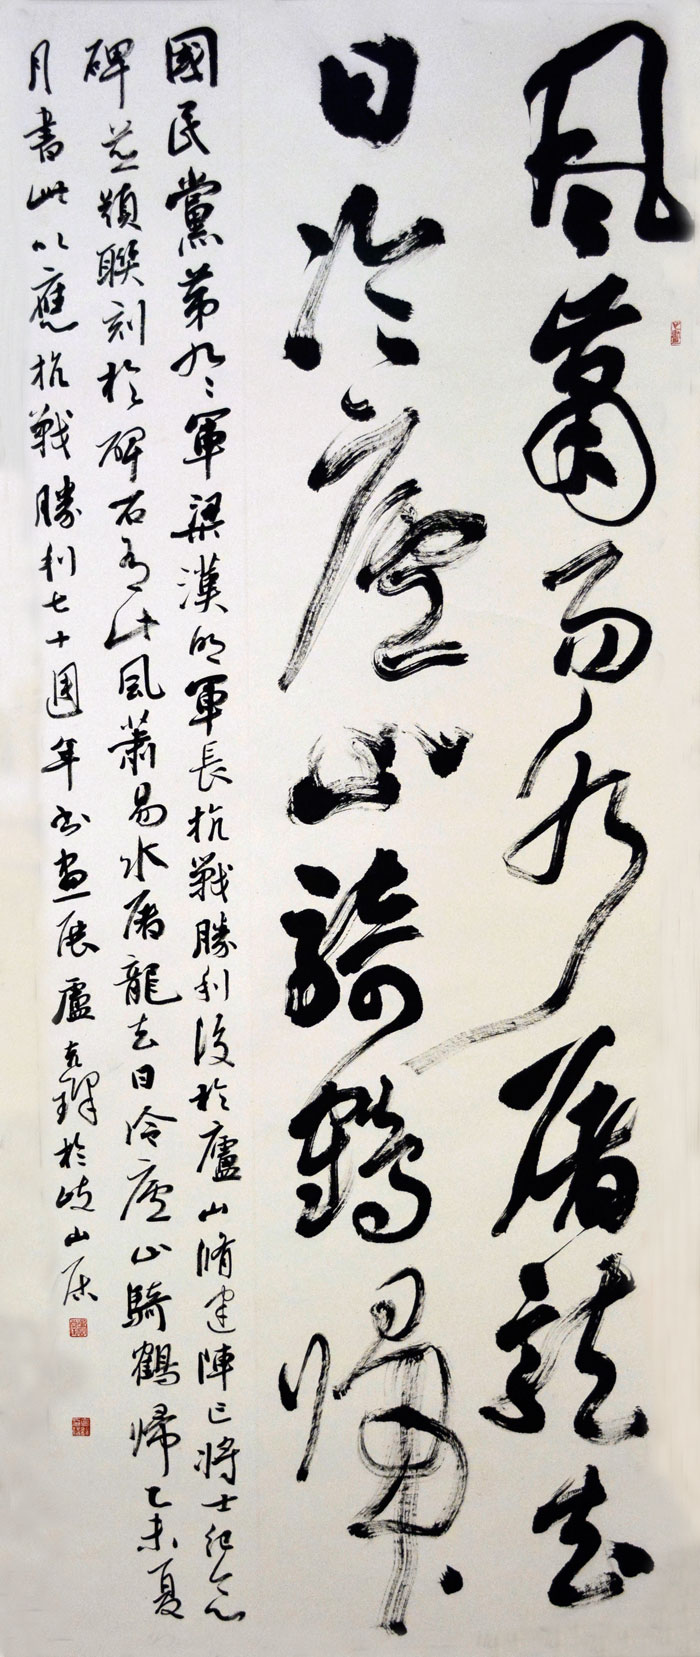 風蕭易水屠龍去
日冷廬山騎鶴歸
國民黨第九九軍梁漢明軍長抗戰勝利後於廬山脩建陣亡將士紀念
碑並題聯刻於碑石為此風蕭易水屠龍去日冷廬山騎鶴歸乙未夏
月書此以應抗戰勝利七十週年書畫展盧克鐸於岐山居